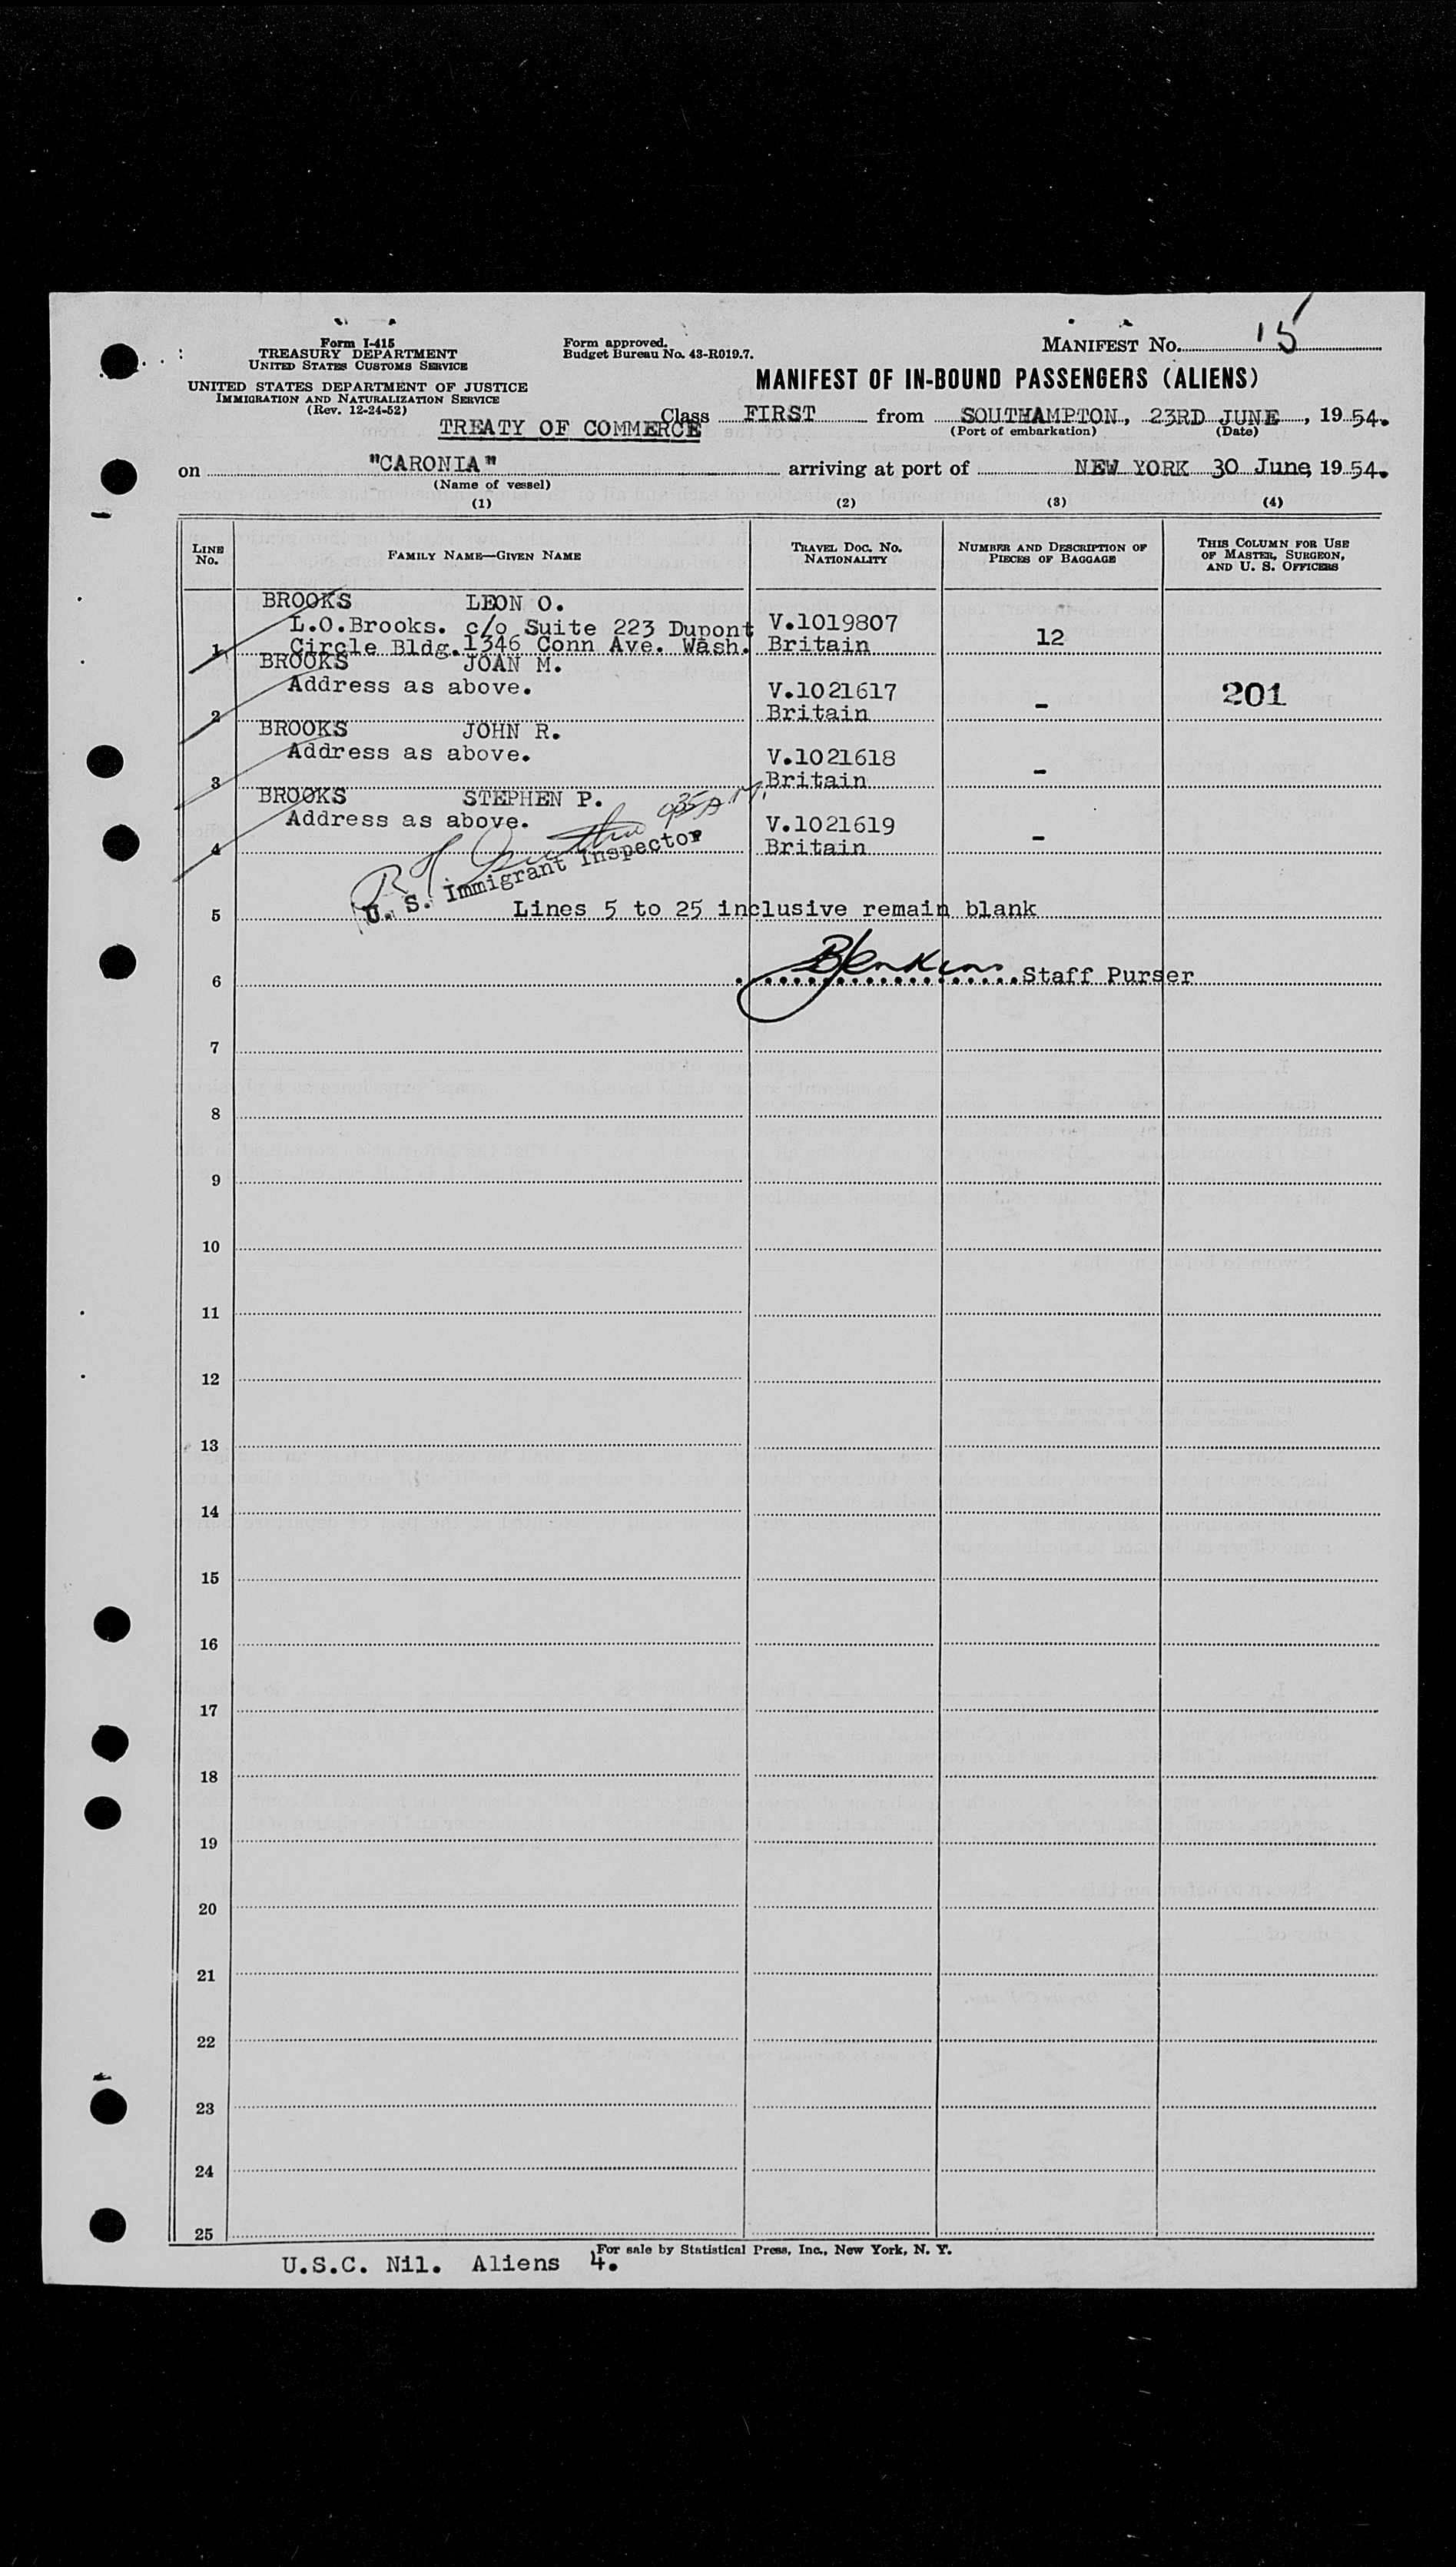 Form I-415
TREASURY DEPARTMENT
UNITED STATES CUSTOMS SERVICE
UNITED STATES DEPARTMENT OF JUSTICE
IMMIGRATION AND NATURALIZATION SERVICE
(Rev. 12-24-52)
Form approved.
Budget Bureau No. 43-R019.7.
MANIFEST NO. 15
MANIFEST OF IN-BOUND PASSENGERS (ALIENS)
TREATY OF COMMERCE Class FIRST from SOUTHAMPTON, 23RD JUNE, 1954.
(Port of embarkation) (Date)
on "CARONIA" arriving at port of NEW YORK 30 June, 1954.
(Name of vessel)
(1) (2) (3) (4)
LINE NO. FAMILY NAME—GIVEN NAME TRAVEL DOC. NO. NATIONALITY NUMBER AND DESCRIPTION OF PIECES OF BAGGAGE THIS COLUMN FOR USE OF MASTER, SURGEON, AND U. S. OFFICERS
BROOKS LEON O.
L.O.Brooks. c/o Suite 223 Dupont V.1019807
1 Circle Bldg. 1346 Conn Ave. Wash. Britain 12
BROOKS JOAN M.
Address as above. V.1021617 201
2 Britain -
BROOKS JOHN R.
Address as above. V.1021618
3 Britain -
BROOKS STEPHEN P. 935 A.M.
Address as above. V.1021619
4 Britain -
U. S. Immigrant Inspector
5 Lines 5 to 25 inclusive remain blank
6 BJenkins Staff Purser
7
8
9
10
11
12
13
14
15
16
17
18
19
20
21
22
23
24
25
For sale by Statistical Press, Inc., New York, N. Y.
U.S.C. Nil. Aliens 4.